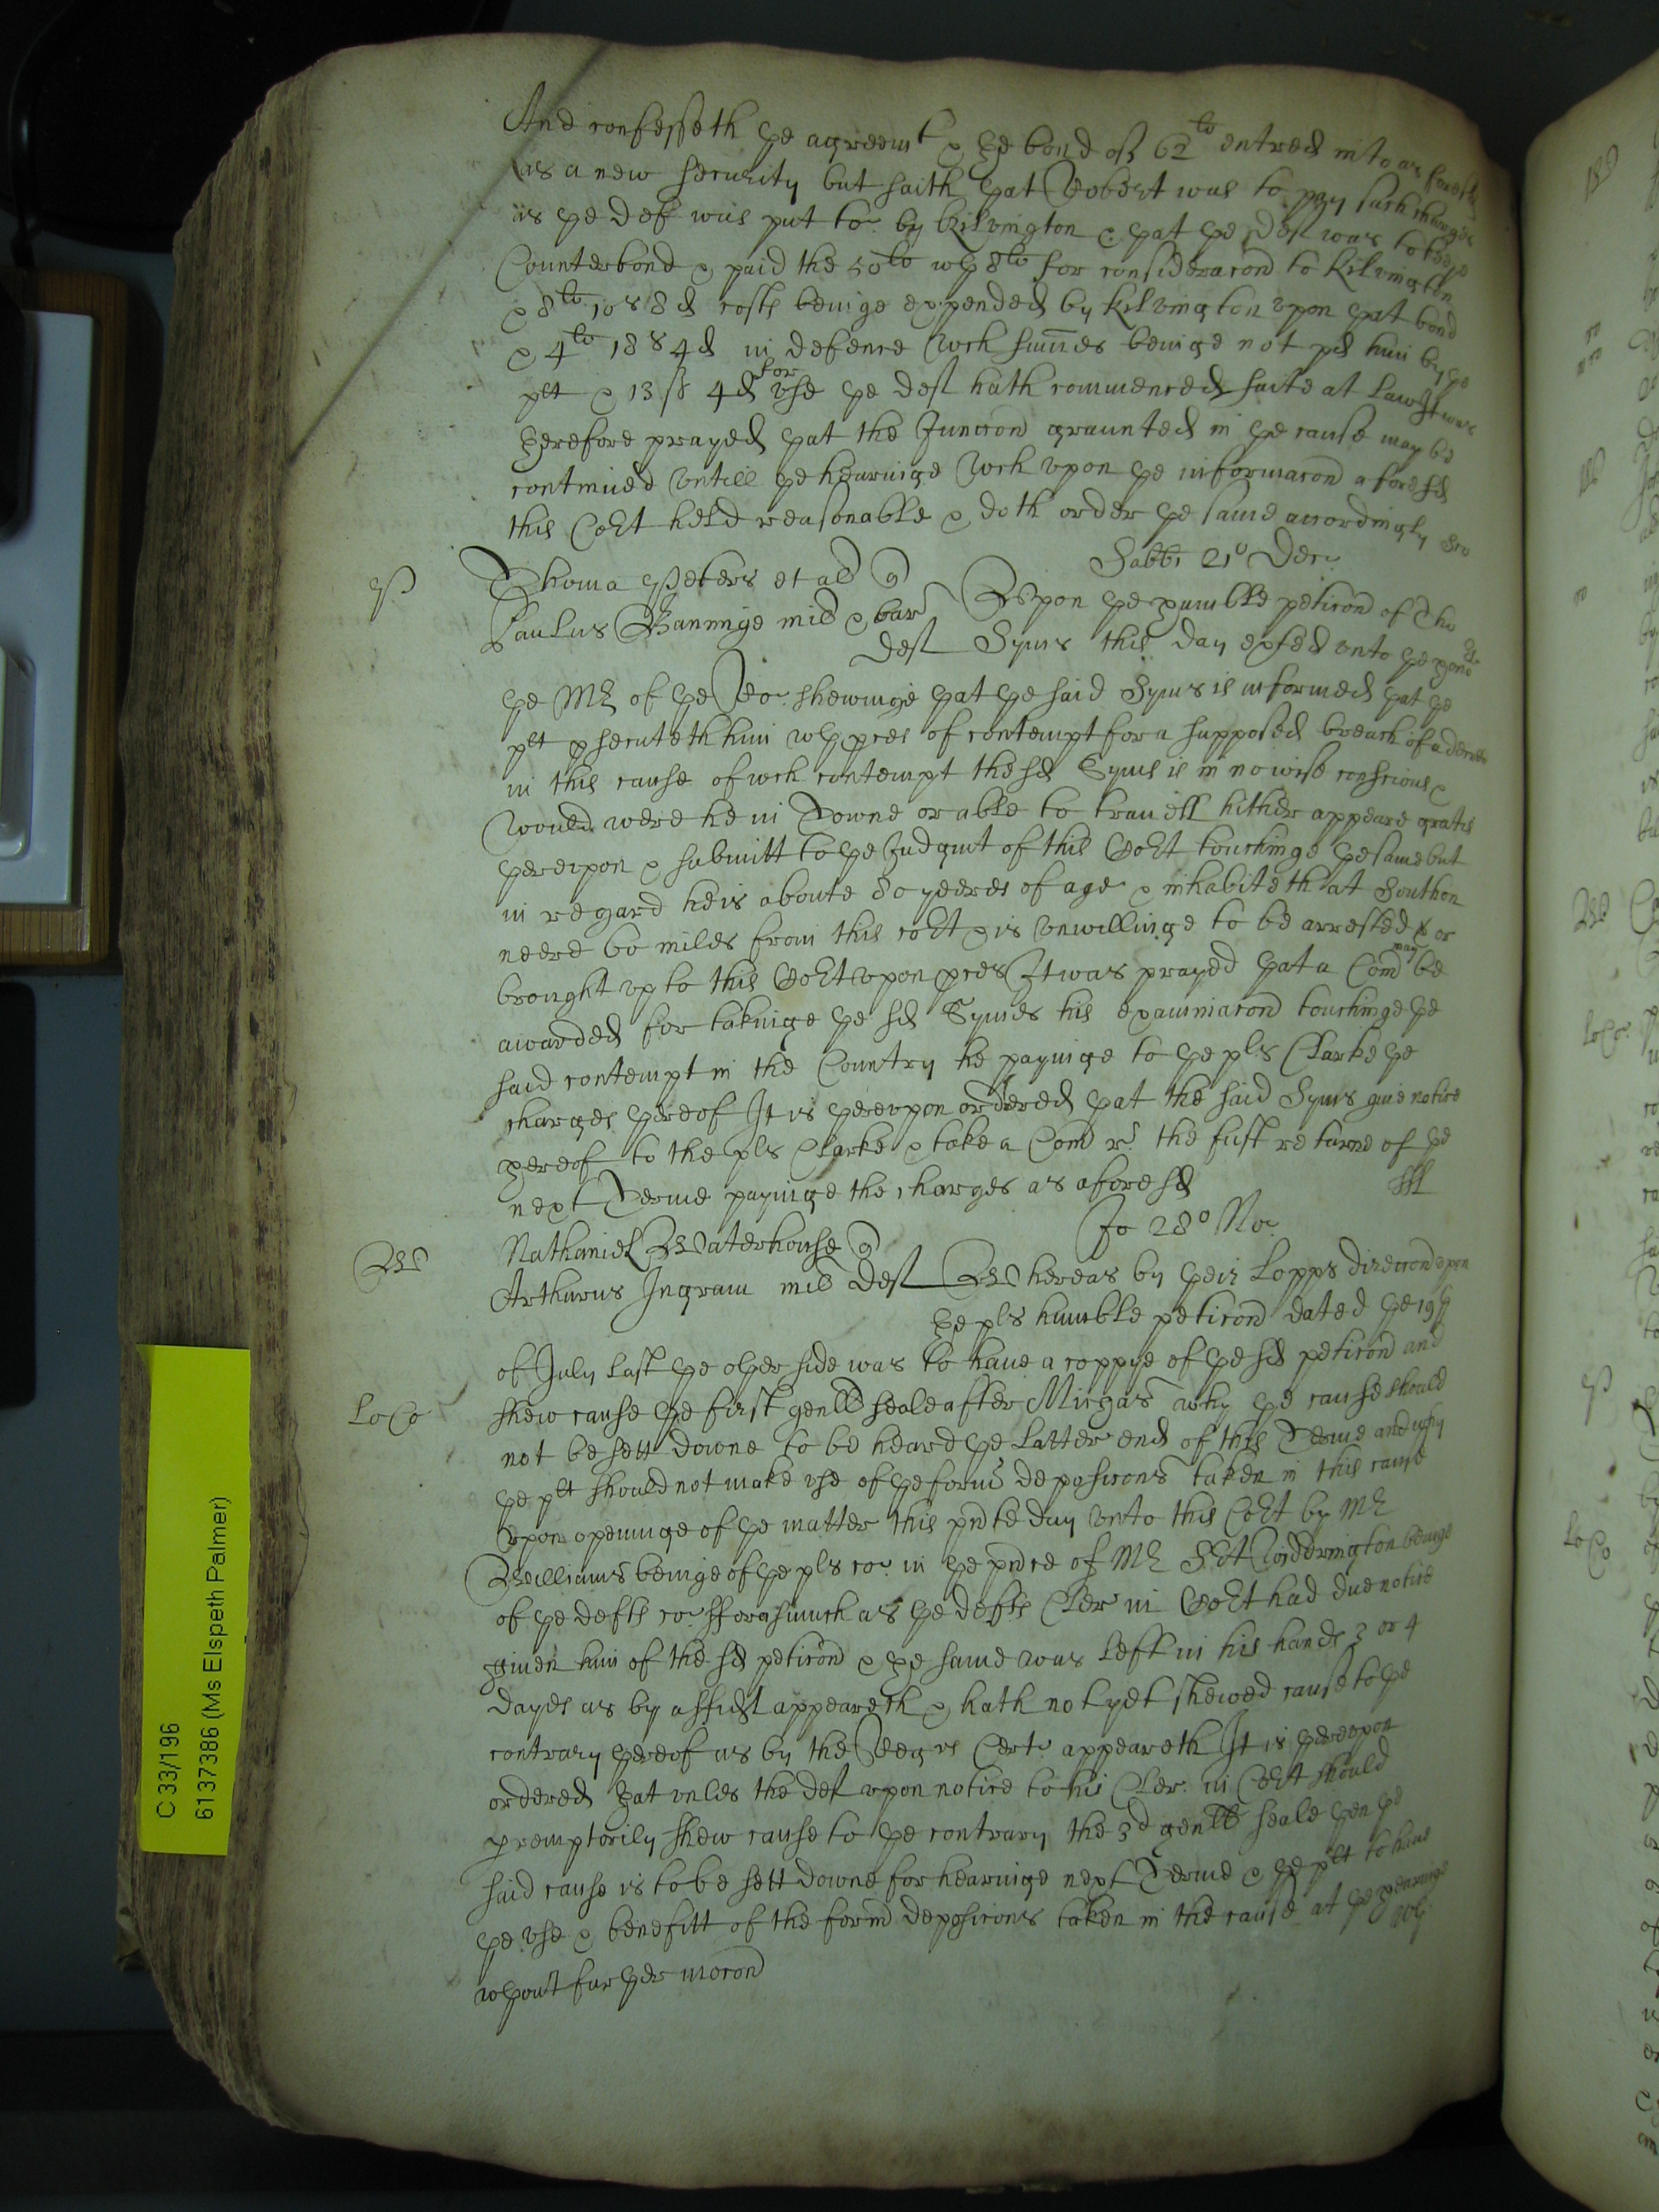 And confesseth þe agreemt & þe bond of 62li entred into as foresd
as a new security but saith þat Robert was to pay such charges
as þe def was put to by Kilvington & þat þe def was to keepe
Counterbond & paid the 50li wth 8li for consideracon to Kilvington
& 8li 10s 8d costs beinge expended by Kilvington vpon þat bond
& 4li 18s 4d in defence wch summes beinge not pd him by þe
plt & 13s 4d for vse þe deft hath commenced suite at Law It was
þerefore prayed þat the Junccon graunted in þe cause may be
continued vntill þe hearinge wch vpon þe informacon aforesd
this Cort held reasonable & doth order þe same accordingly
Sabbi 21o Dec
P
Thoma Peters et al q
Paulus Baninge mil & bar
deft
Vpon þe humble peticon of Tho
Syms this day exhted vnto þe
þe Mr of þe Ro: shewinge þat þe said Syms is informed þat þe
plt psecuteth him wth pces of contempt for a supposed breach of a decree
in this cause of wch contempt the sd Syms is in no wise conscious &
Would were he in Towne or able to travell hither appeare gratis
þerevpon & submitt to þe Judgmt of this Cort touchinge þe same but
in regard he is aboute 80 yeeres of age & inhabiteth at Southon
neere 60 miles from this cort & is vnwillinge to be arrested or
brought vp to this Cort vpon pces It was prayed þat a Com may be
awarded for takinge þe sd Symes his examinacon touchinge þe
said contempt in the Country he payinge to þe pls Clarke þe
charges þereof It is þerevpon ordered þat the said Syms give notice
þereof to the pls Clarke & take a Com the first returne of þe
next Terme payinge the charges as aforesd
Jo 28o No
W
Nathaniel Waterhouse q
Arthurus Ingram mil deft
Whereas by þeir Lopps direccon vpon
þe pls humble peticon dated þe 19th
of July last þe oþer side was to have a coppye of þe sd peticon and
LoCo
shew cause þe first genll seale after Michas why þe cause should
not be sett downe to be heard þe latter end of this Terme and why
þe plt should not make vse of þe form deposicons taken in this cause
vpon openinge of þe matter this pnte day vnto this Cort by Mr
Williams beinge of þe pls co: in þe pnce of Mr Sert Widdrington beinge
of þe defts co: fforasmuch as þe defts Cler in Cort had due notice
given him of the sd peticon & þe same was left in his hands 3 or 4
dayes as by affidt appeareth & hath not yet shewed cause to þe
contrary þereof as by the Regrs Certe appeareth It is þerevpon
ordered þat vnles the def vpon notice to his Cler in Cort should
premptorily shew cause to þe contrary the 3d genll seale þen þe
said cause is to be sett downe for hearinge next Terme & þe plt to have
þe vse & benefitt of the form deposicons taken in the cause at þe hearinge
wþout furþer mocon
C 33/196
6137386 (Ms Elspeth Palmer)